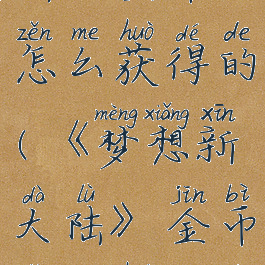 zěn me huò dé de
怎么获得的
mèng xiǎng xīn
(《梦想新
dà lù jīn bì
大陆》金币